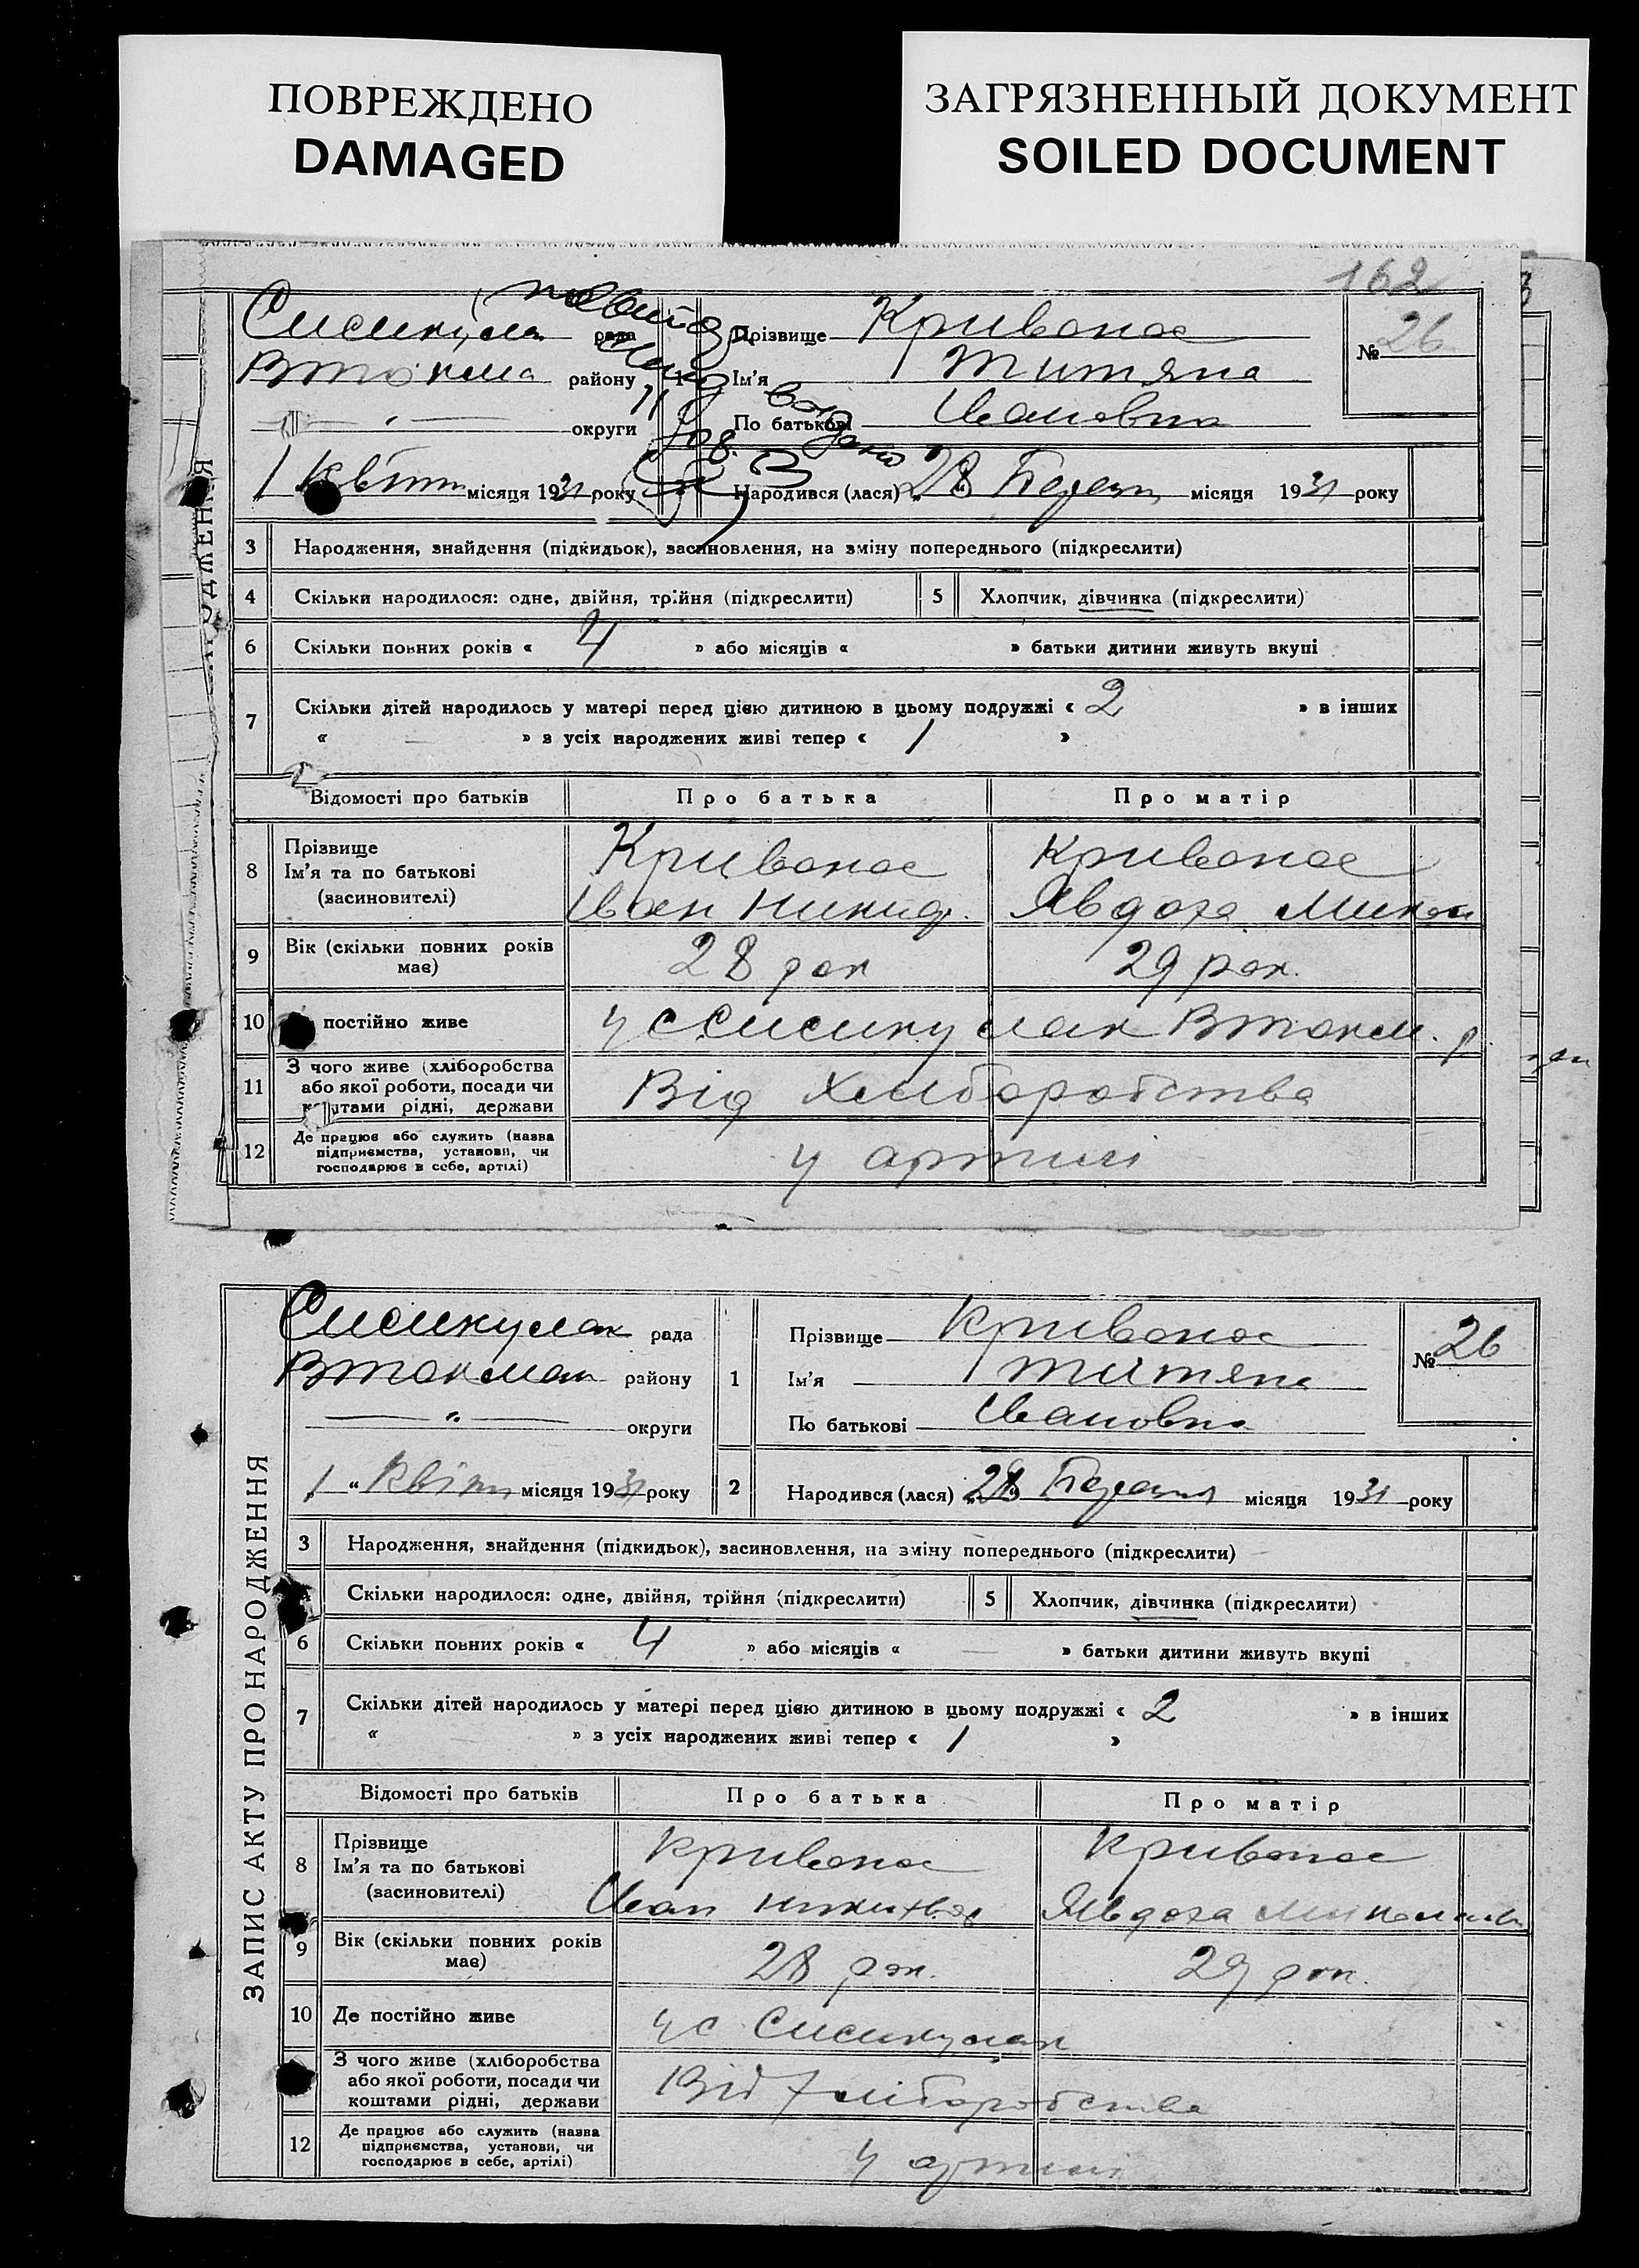 ПОВРЕЖДЕНО
DAMAGED
ЗАГРЯЗНЕННЫЙ ДОКУМЕНТ
SOILED DOCUMENT
162
рада
району
округи
1 Квітн місяця 1931 року
Прізвище Кривонос
Ім’я Титяна
По батькові Ивановна
№ 26
Народився (лася) „28“ Березня місяця 1931 року
3 Народження, знайдення (підкидьок), засиновлення, на зміну попереднього (підкреслити)
4 Скільки народилося: одне, двійня, трійня (підкреслити) 5 Хлопчик, дівчинка (підкреслити)
6 Скільки повних років « 4 » або місяців « » батьки дитини живуть вкупі
7 Скільки дітей народилось у матері перед цією дитиною в цьому подружжі « 2 » в інших
« — » з усіх народжених живі тепер « 1 »
Відомості про батьків Про батька Про матір
8 Прізвище Кривонос Кривонос
Ім’я та по батькові
(засиновителі) Иван Явдоха
9 Вік (скільки повних років
має) 28 рок 29 рок.
10 постійно живе у с
11 З чого живе (хліборобства
або якої роботи, посади чи
коштами рідні, держави Від Хліборобства
12 Де працює або служить (назва
підприємства, установи, чи
господарює в себе, артілі) у артилі
ЗАПИС АКТУ ПРО НАРОДЖЕННЯ
Сисикулак рада
Втокмак району
— „ — округи
„1“ Квітн місяця 1931 року
1 Прізвище Кривонос
Ім’я Титяна
По батькові Ивановна
№ 26
2 Народився (лася) „28“ Березня місяця 1931 року
3 Народження, знайдення (підкидьок), засиновлення, на зміну попереднього (підкреслити)
Скільки народилося: одне, двійня, трійня (підкреслити) 5 Хлопчик, дівчинка (підкреслити)
6 Скільки повних років « 4 » або місяців « — » батьки дитини живуть вкупі
7 Скільки дітей народилось у матері перед цією дитиною в цьому подружжі « 2 » в інших
« » з усіх народжених живі тепер « 1 »
Відомості про батьків Про батька Про матір
8 Прізвище Кривонос Кривонос
Ім’я та по батькові
(засиновителі) Иван Явдоха
9 Вік (скільки повних років
має) 28 рок. 29 рок.
10 Де постійно живе у с Сисикулак
З чого живе (хліборобства
або якої роботи, посади чи
коштами рідні, держави Від Хліборобства
12 Де працює або служить (назва
підприємства, установи, чи
господарює в себе, артілі) у артилі